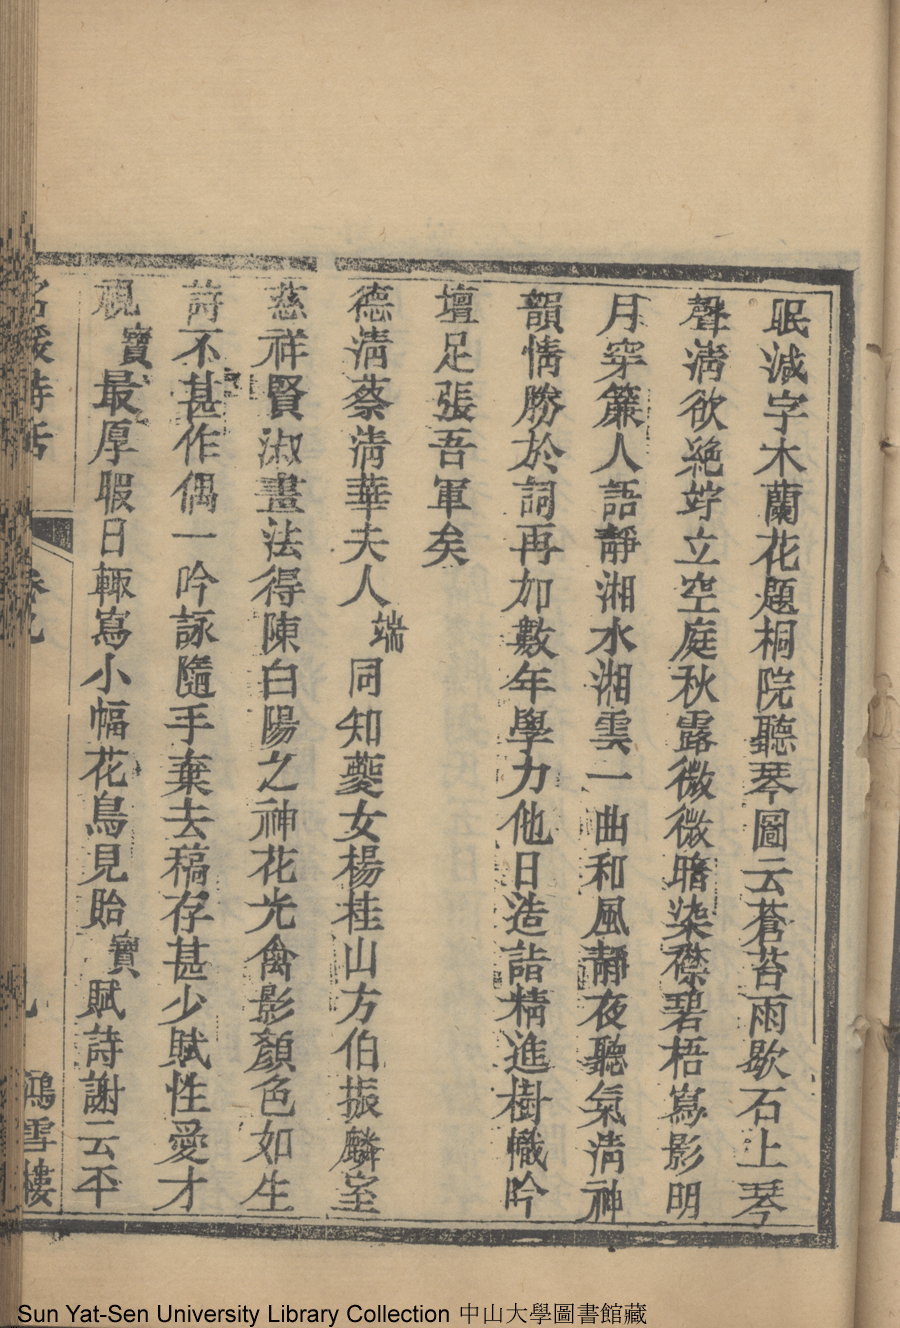 眠減字木蘭花題桐院聽琴圖云蒼苔雨歇石上琴
聲淸欲絶竚立空庭秋露微微暗染襟碧梧寫影明
月穿簾人語靜湘水湘雲一曲和風靜夜聽氣淸神
韻情勝於詞再加數年學力他日造詣精進樹幟吟
壇足張吾軍矣
德淸蔡淸華夫人端同知夔女楊桂山方伯振麟室
慈祥賢淑畫法得陳白陽之神花光禽影顏色如生
詩不甚作偶一吟詠隨手棄去稿存甚少賦性愛才
視寶最厚暇日輒寫小幅花鳥見貽寶賦詩謝云平
名媛詩話 卷九 九 鴻雪樓
Sun Yat-Sen University Library Collection 中山大學圖書館藏